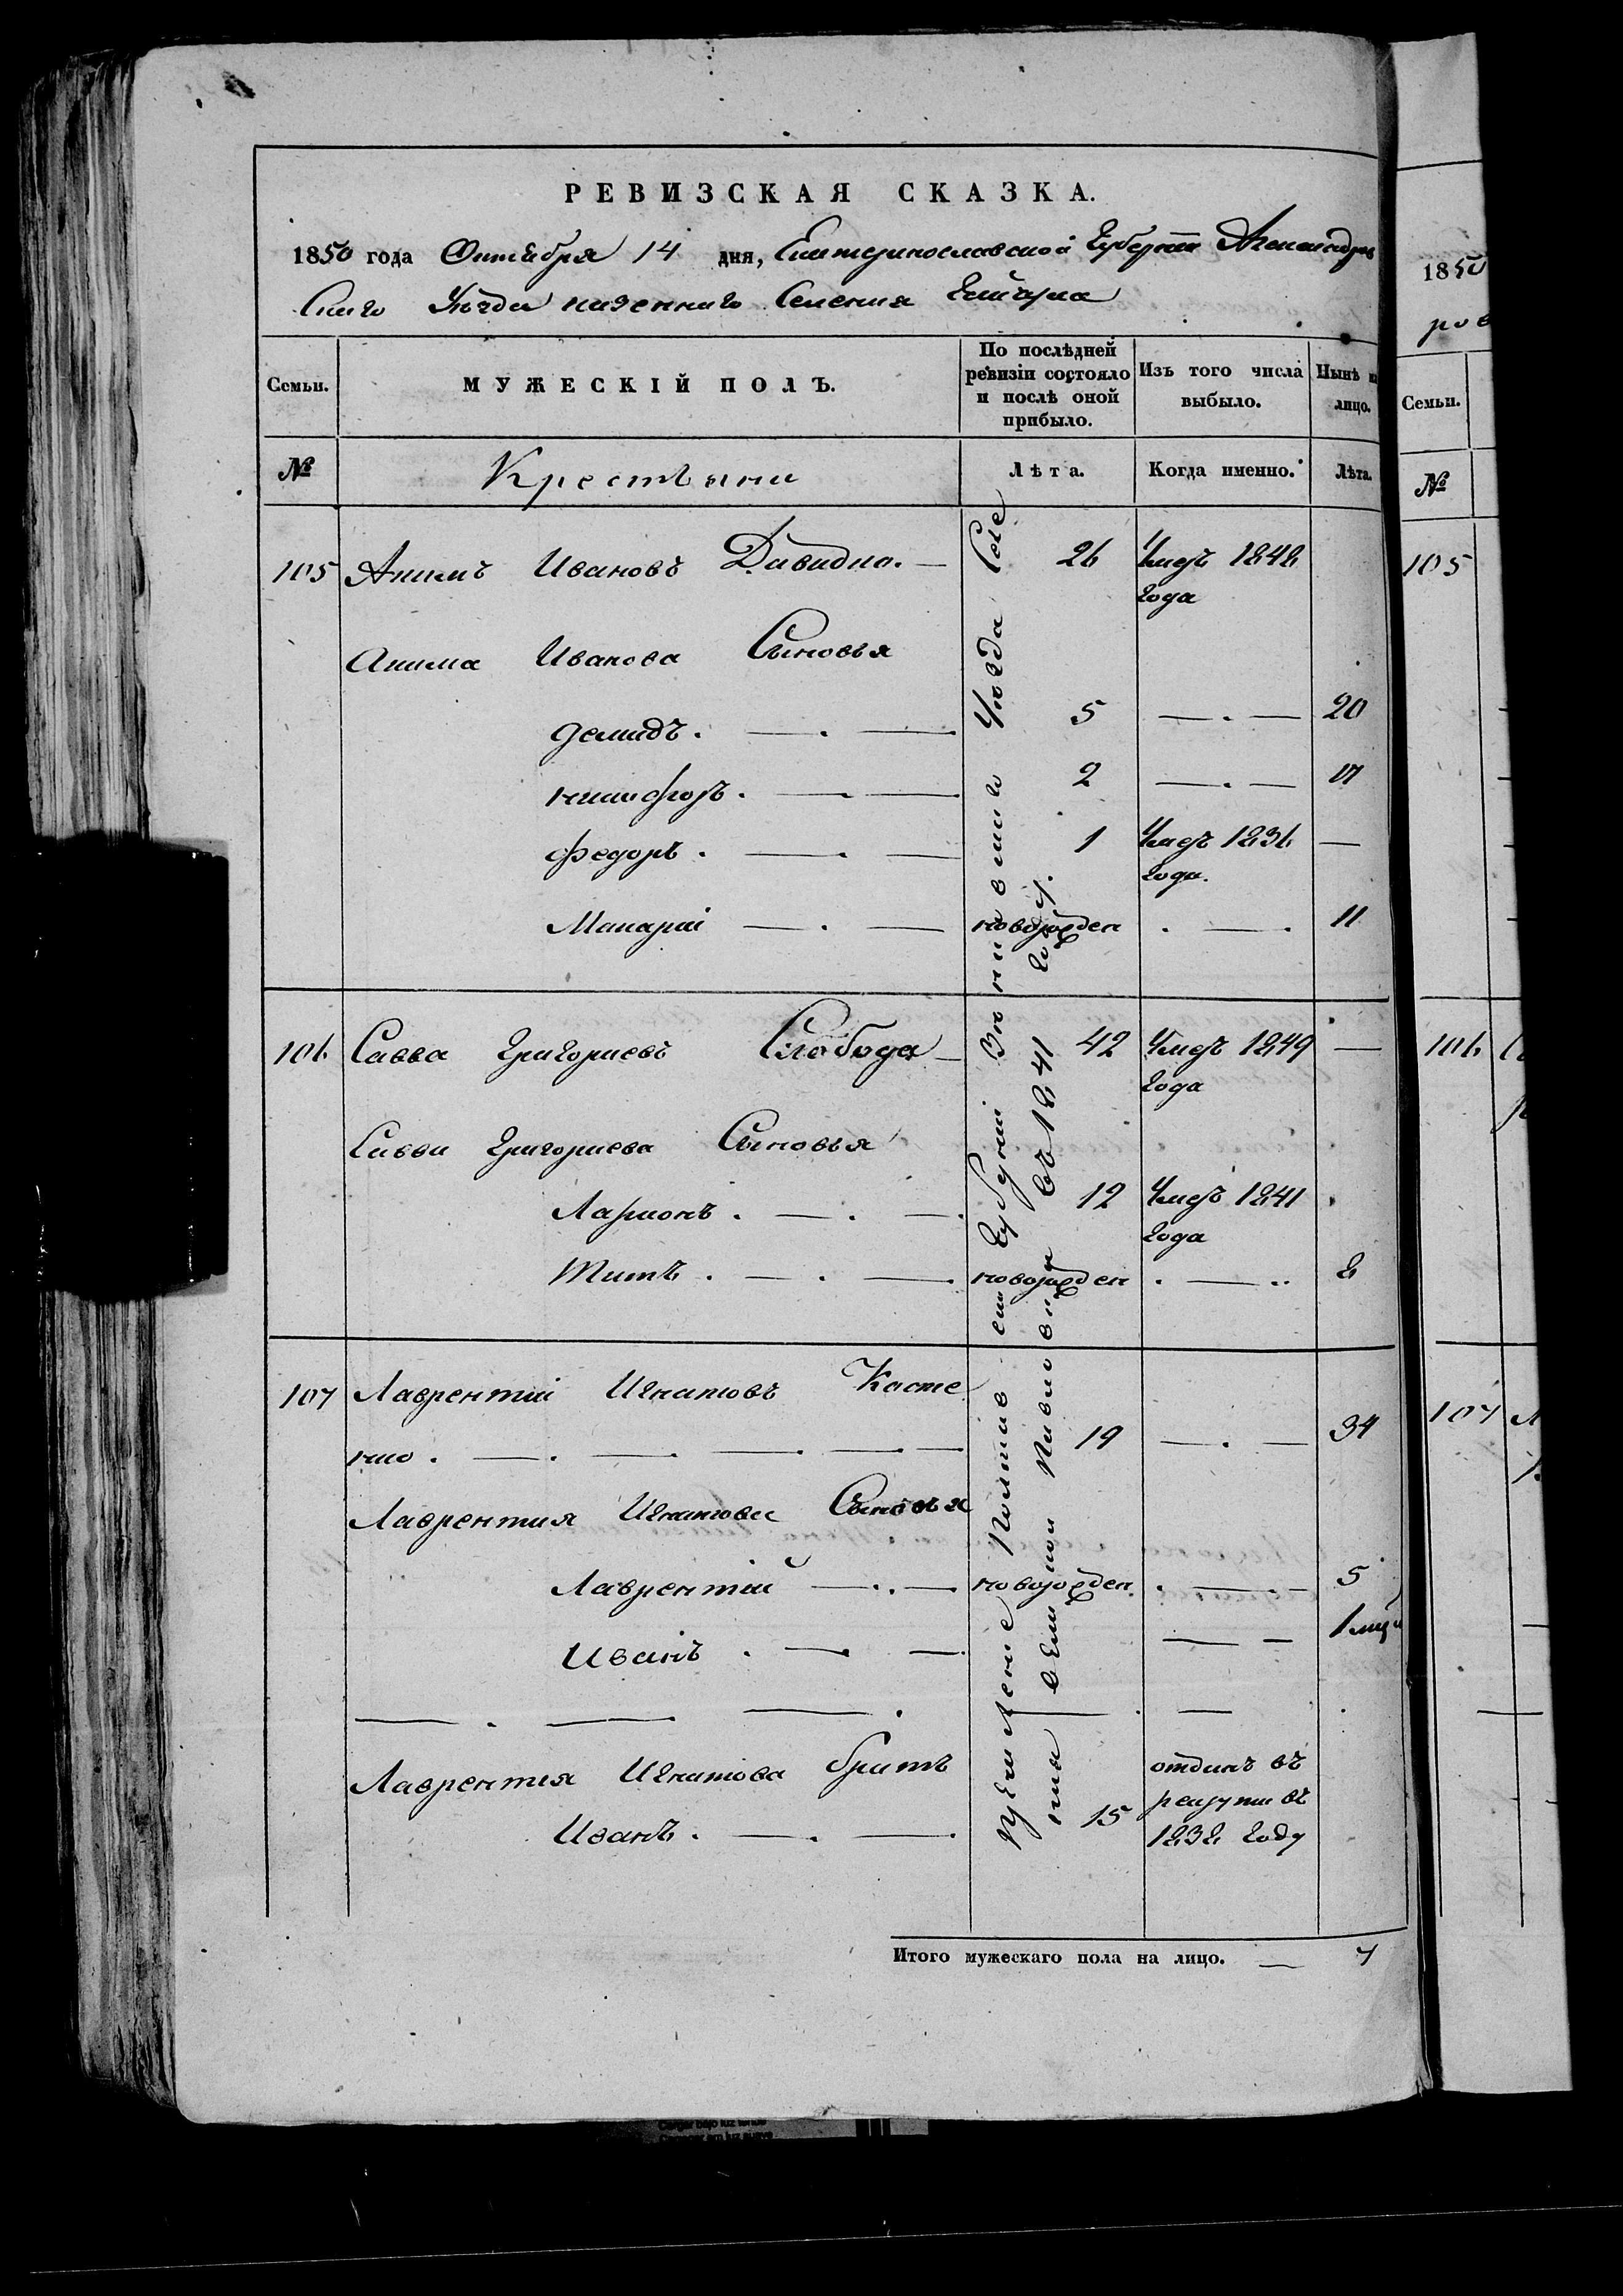 РЕВИЗСКАЯ СКАЗКА.
1850 года Октября 14 дня, Екатеринославской Губернии Александров
скаго Уезда казеннаго Селения Гайчула
Семьи.
МУЖЕСКІЙ ПОЛЪ.
По послѣдней
ревизіи состояло
и послѣ оной
прибыло.
Изъ того числа
выбыло.
Нынѣ н
лицо.
№
Крестьяни
Лѣта.
Когда именно.
Лѣта.
105 Акимъ Ивановъ Давидко. — 26 Умеръ 1848
года
Акима Иванова Сыновья
Демидъ. 5 — . — 20
никифоръ. 2 — . — 17
Федоръ. 1 Умеръ 1836 —
года.
Макарій новорожден . — . 11
106 Савва Григориевъ Слобода — 42 Умеръ 1849 —
года
Саввы Григориева Сыновья
Ларионъ. 12 Умеръ 1841
года
Титъ. новорожден . — .. 8
107 Лаврентій Игнатовъ Косте
нко. 19 — . — 34
Лаврентия Игнатова Сыновья
Лаврентій новорожден. . — . 5
Иванъ. — — 1
Лаврентия Игнатова братъ
Иванъ. 15
отданъ въ
рекруты въ
1838 году
Полтав ской Губернии Зѣньковскаго Уезда
въ 1841
году.
Итого мужескаго пола на лицо. — 7
1850
ров
Семьи.
№
105
106
107